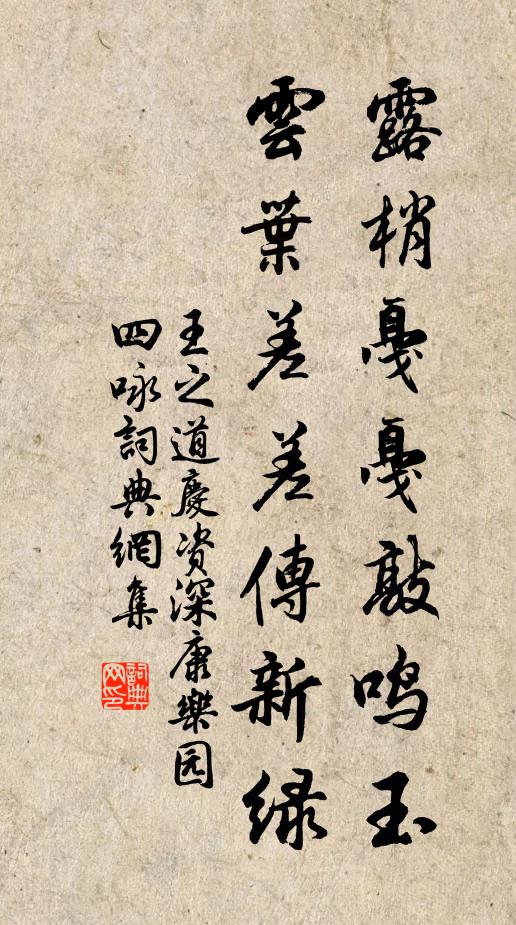 露梢戛戛敲鸣玉
雲葉差差傳新緑
王之道慶资深康樂园
四咏詞典網集
詞典网印